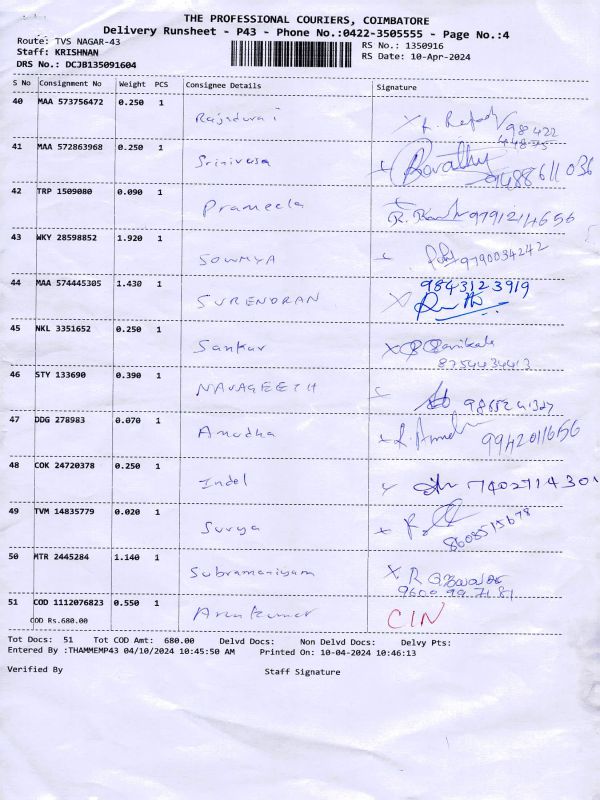 THE PROFESSIONAL COURIERS, COIMBATORE
Delivery Runsheet - P43 - Phone No.:0422-3505555 - Page No.:4
Route: TVS NAGAR-43
RS No.: 1350916
Staff: KRISHNAN
RS Date: 10-Apr-2024
DRS No.: DCJB135091604
S No Consignment No Weight PCS Consignee Details Signature
40 MAA 573756472 0.250 1 Rajadurai
98422
41 MAA 572863968 0.250 1 Srinivasa
42 TRP 1509080 0.090 1 Prameela 9791214656
43 WKY 28598852 1.920 1 SOWMYA 9790034242
44 MAA 574445305 1.430 1 SURENDRAN 9843123919
45 NKL 3351652 0.250 1 Sankar
8754434413
46 STY 133690 0.390 1 NAVAGEETH
47 DDG 278983 0.070 1 Anudha 9942011656
48 COK 24720378 0.250 1 Indel 7402714301
49 TVM 14835779 0.020 1 Surya 8608515678
50 MTR 2445284 1.140 1 Subramaniyam
9600 99 7181
51 COD 1112076823 0.550 1 Arunkumar CIN
COD Rs.680.00
Tot Docs: 51 Tot COD Amt: 680.00 Delvd Docs: Non Delvd Docs: Delvy Pts:
Entered By :THAMMEMP43 04/10/2024 10:45:50 AM Printed On: 10-04-2024 10:46:13
Verified By Staff Signature